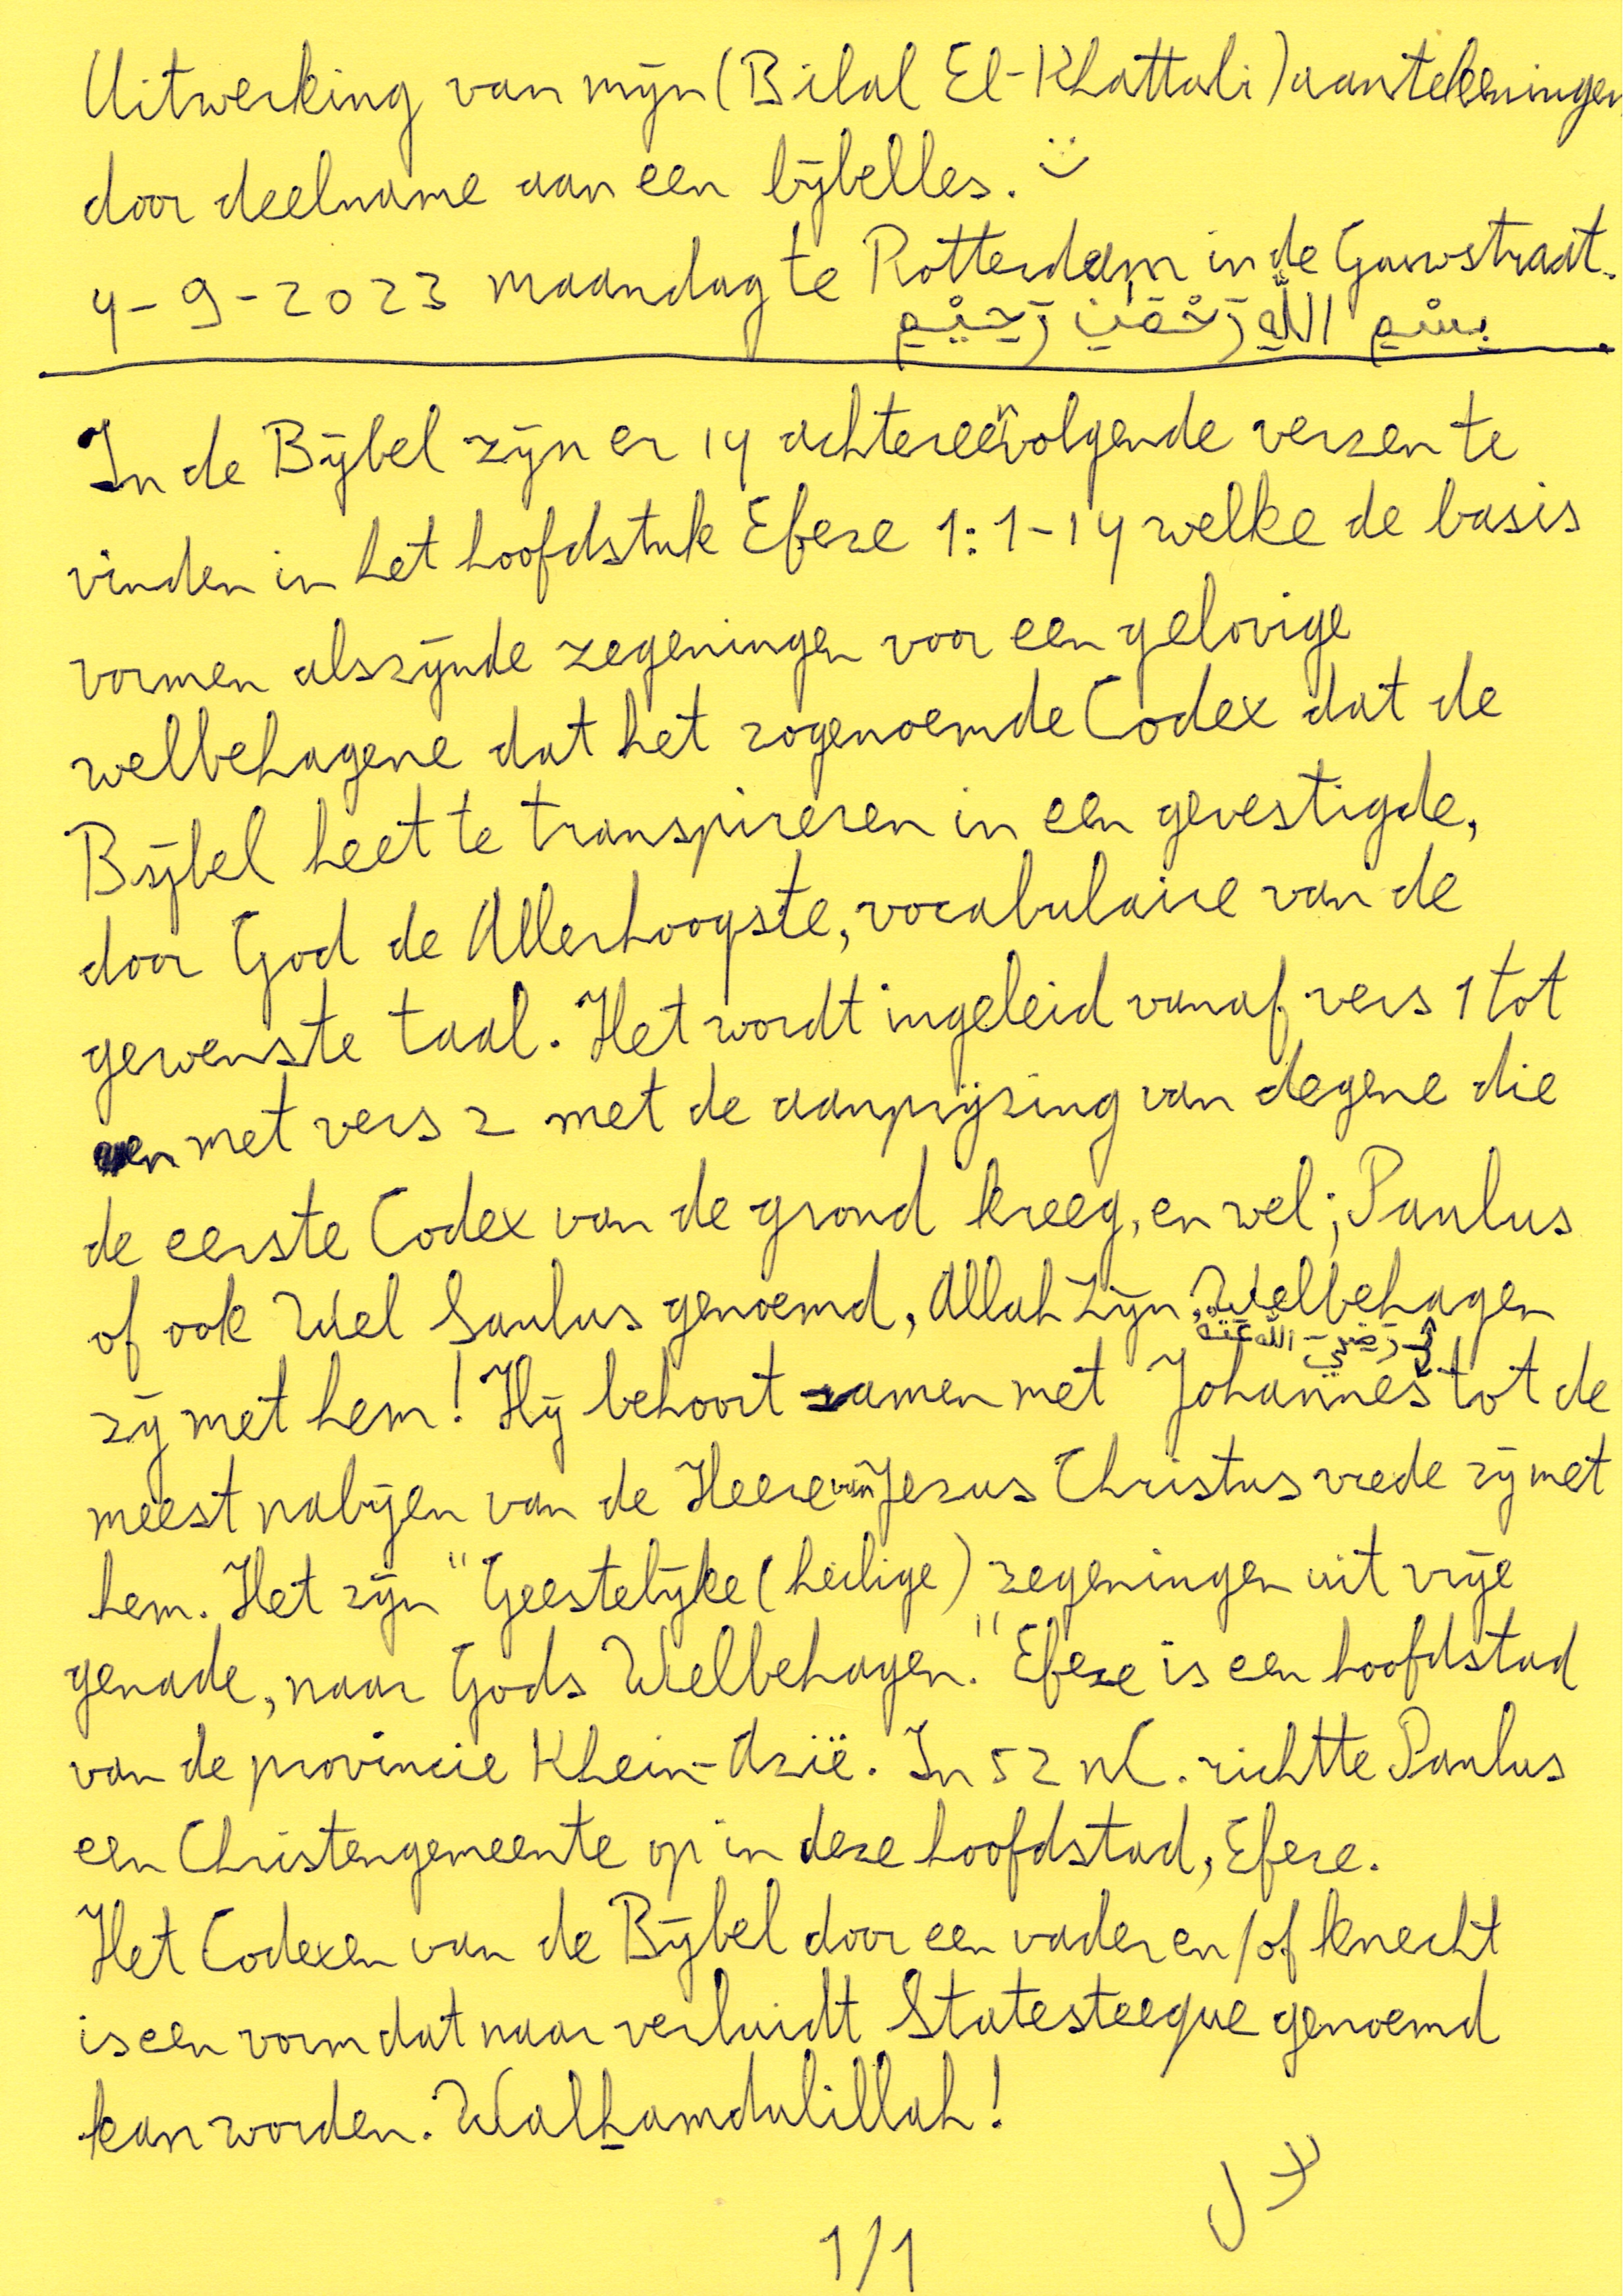 Uitwerking van mijn (Bilal El-Khattabi) aantekeningen
door deelname aan een bijbelles. :)
4-9-2023 maandag te Rotterdam in de Gouwstraat.
بِسْمِ اللَّهِ رَحْمَٰنِ رَحِيْمِ
In de Bijbel zijn er 14 achtereenvolgende verzen te
vinden in het hoofdstuk Efeze 1:1-14 welke de basis
vormen alszijnde zegeningen voor een gelovige
welbehagene dat het zogenoemde Codex dat de
Bijbel heet te transpireren in een gevestigde,
door God de Allerhoogste, vocabulaire van de
gewenste taal. Het wordt ingeleid vanaf vers 1 tot
en met vers 2 met de aanprijzing van degene die
de eerste Codex van de grond kreeg, en wel; Paulus
of ook Wel Saulus genoemd, Allah Zijn Welbehagen
رَضِيَ اللَّهُ عَنْهُ
zij met hem! Hij behoort samen met Johannes tot de
meest nabijen van de Heere van Jezus Christus vrede zij met
hem. Het zijn "Geestelijke (heilige) zegeningen uit vrije
genade, naar Gods Welbehagen." Efeze is een hoofdstad
van de provincie Klein-Azië. In 52 nC. richtte Paulus
een Christengemeente op in deze hoofdstad, Efeze.
Het Codexen van de Bijbel door een vader en/of knecht
is een vorm dat naar verluidt Statesteeque genoemd
kan worden. Walhamdulillah!
1/1